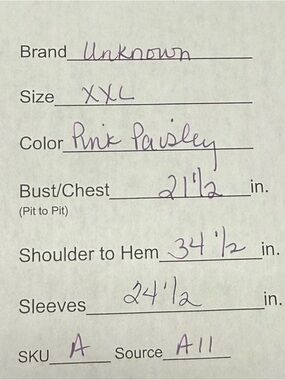 Brand Unknown
Size XXL
Color Pink Paisley
Bust/Chest 21 1/2 in.
(Pit to Pit)
Shoulder to Hem 34 1/2 in.
Sleeves 24 1/2 in.
SKU A Source A11